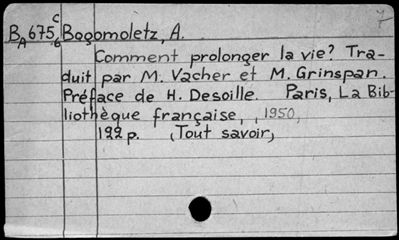 BA675C6 Bogomoletz, A.
Comment prolonger la vie? Tra-
duit par M. Vacher et M. Grinspan.
Préface de H. Desoille. Paris, La Bib-
liothèque française, , 1950,
192 p. (Tout savoir)